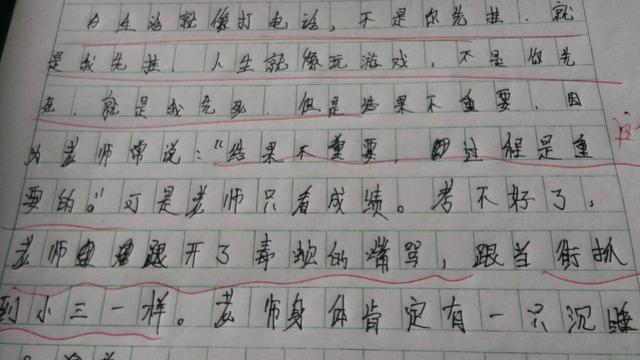 为生活就像打电话，不是你先挂．就
是我先挂．人生就像玩游戏，不是你先
死．就是我先死．但是结果不重要．因
为老师常说：“结果不重要，过程是重
要的。”可是老师只看成绩。考不好了，
老师跟开了毒蛇的嘴骂，跟当街抓
到小三一样。老师身体肯定有一只沉睡